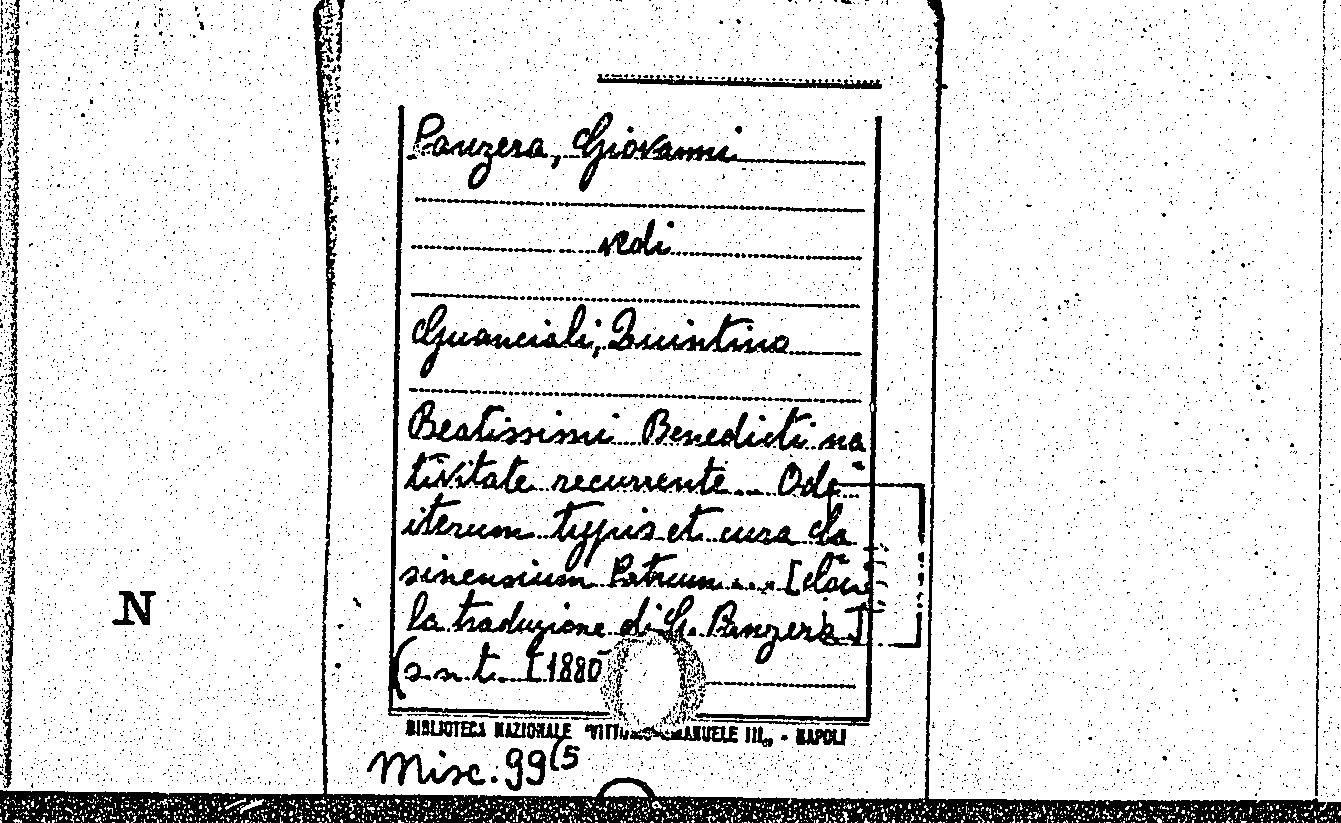 Panzera, Giovanni
vedi
Guanciali, Quintino
Beatissimi Benedicti na
tivitate recurrente... Ode
iterum typis et cura ca
sinensium Patrum... [con
la traduzione di G. Panzera]
(s.n.t. [1880
BIBLIOTECA NAZIONALE "VITTORIO EMANUELE III„ - NAPOLI
Misc. 99(5
N